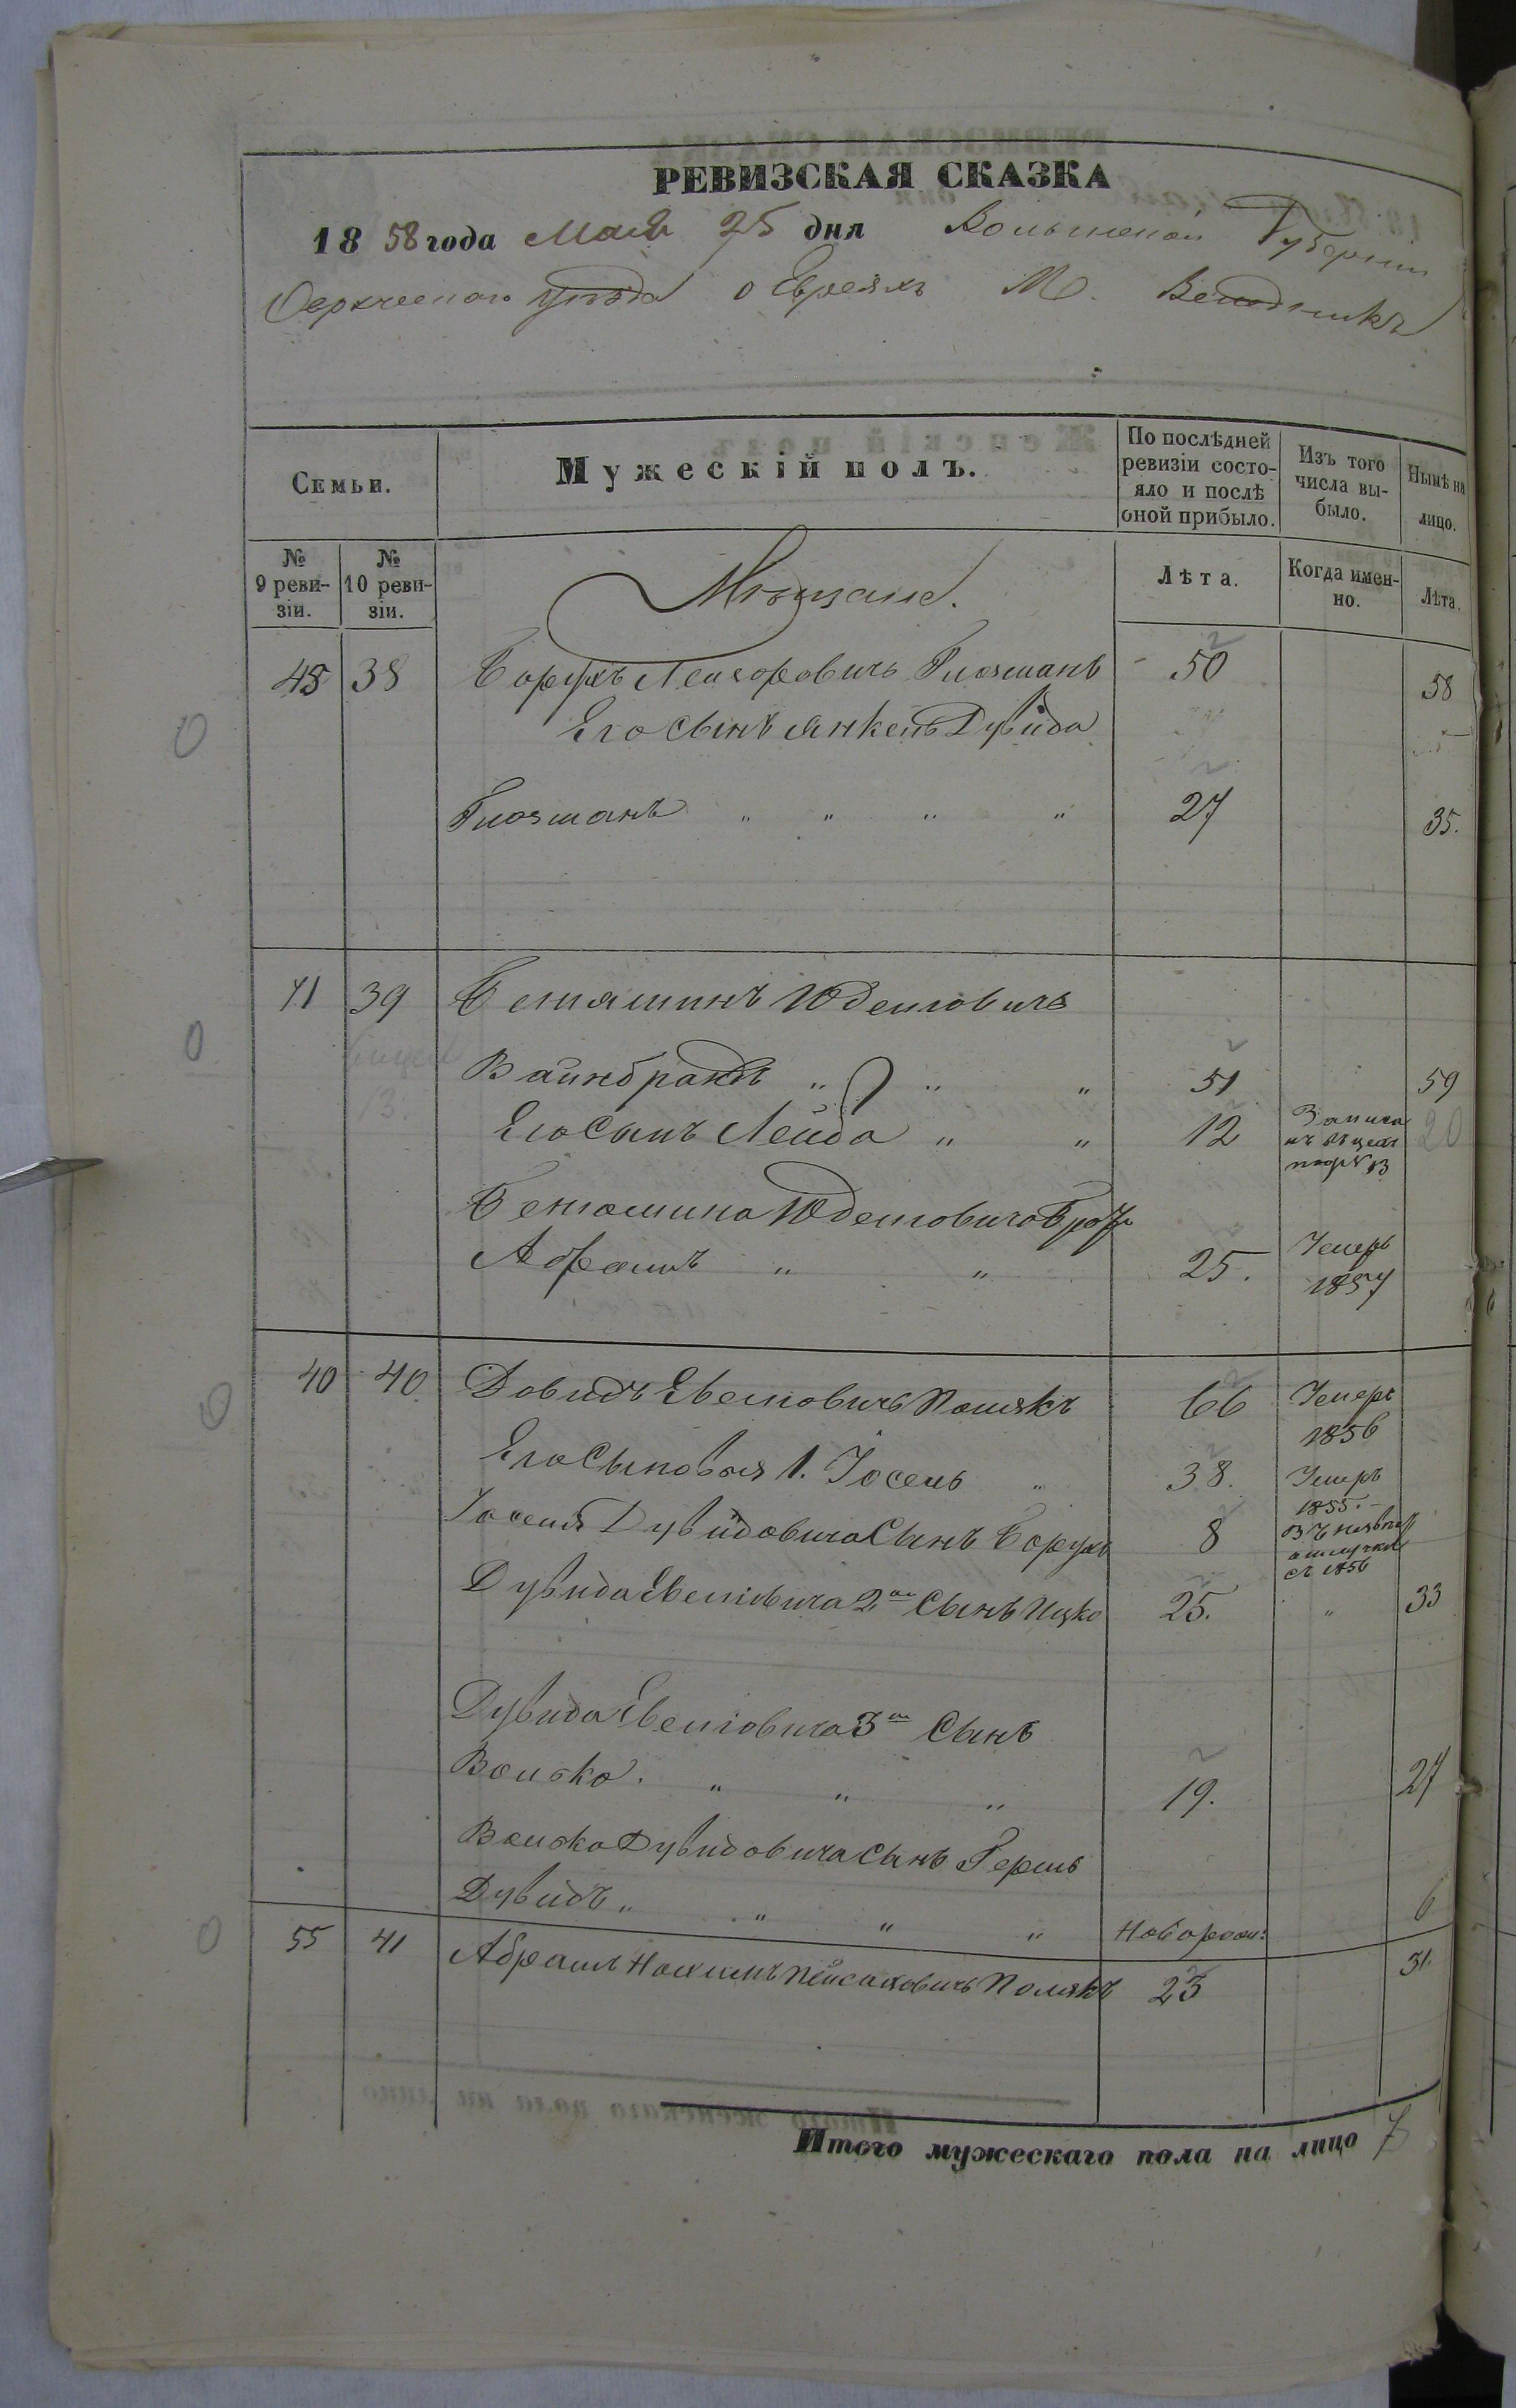 РЕВИЗСКАЯ СКАЗКА
18 58 года Мая 25 дня Волынской Губернии
Овручскаго уѣзда о Евреяхъ М. Веледникъ
Семьи.
Мужескій полъ.
По послѣдней ревизіи состо-
яло и послѣ
оной прибыло.
Изъ того
числа вы-
было.
Нынѣ на
лицо.
№
9 реви-
зіи.
№
10 реви-
зіи.
Мѣщане.
Лѣта.
Когда имен-
но.
Лѣта.
45 38 Борухъ Лейзоровичъ Глозманъ 50 58
Его сынъ Янкель Дувидъ
Глозманъ " " " " 27 35.
41 39 Беніяминъ Юделовичъ
Вайнбрандъ " " " 51 59
Его Сынъ Лейба " " 12 20
Беніомина Юделовича Братъ
Абрамъ " " 25. Умеръ
1857
40 40 Довидъ Евелиовичъ Полякъ 66 Умеръ
1856
Его Сыновья 1. Іосель " 38. Умеръ
1855.
Іоселя Дувидовича Сынъ Борухъ 8 въ неявной
отлучкѣ
съ 1856
Дувида Евелиовича 2й Сынъ Ицко 25. " 33
Дувида Евелиовича 3й Сынъ
Волько. " " " 19. 27
Волька Дувидовича Сынъ Гершъ
Дувидъ " " " " Новорож: 6
55 41 Абрамъ Нохимъ Пейсаховичъ Полякъ 23 31
Итого мужескаго пола на лицо 7